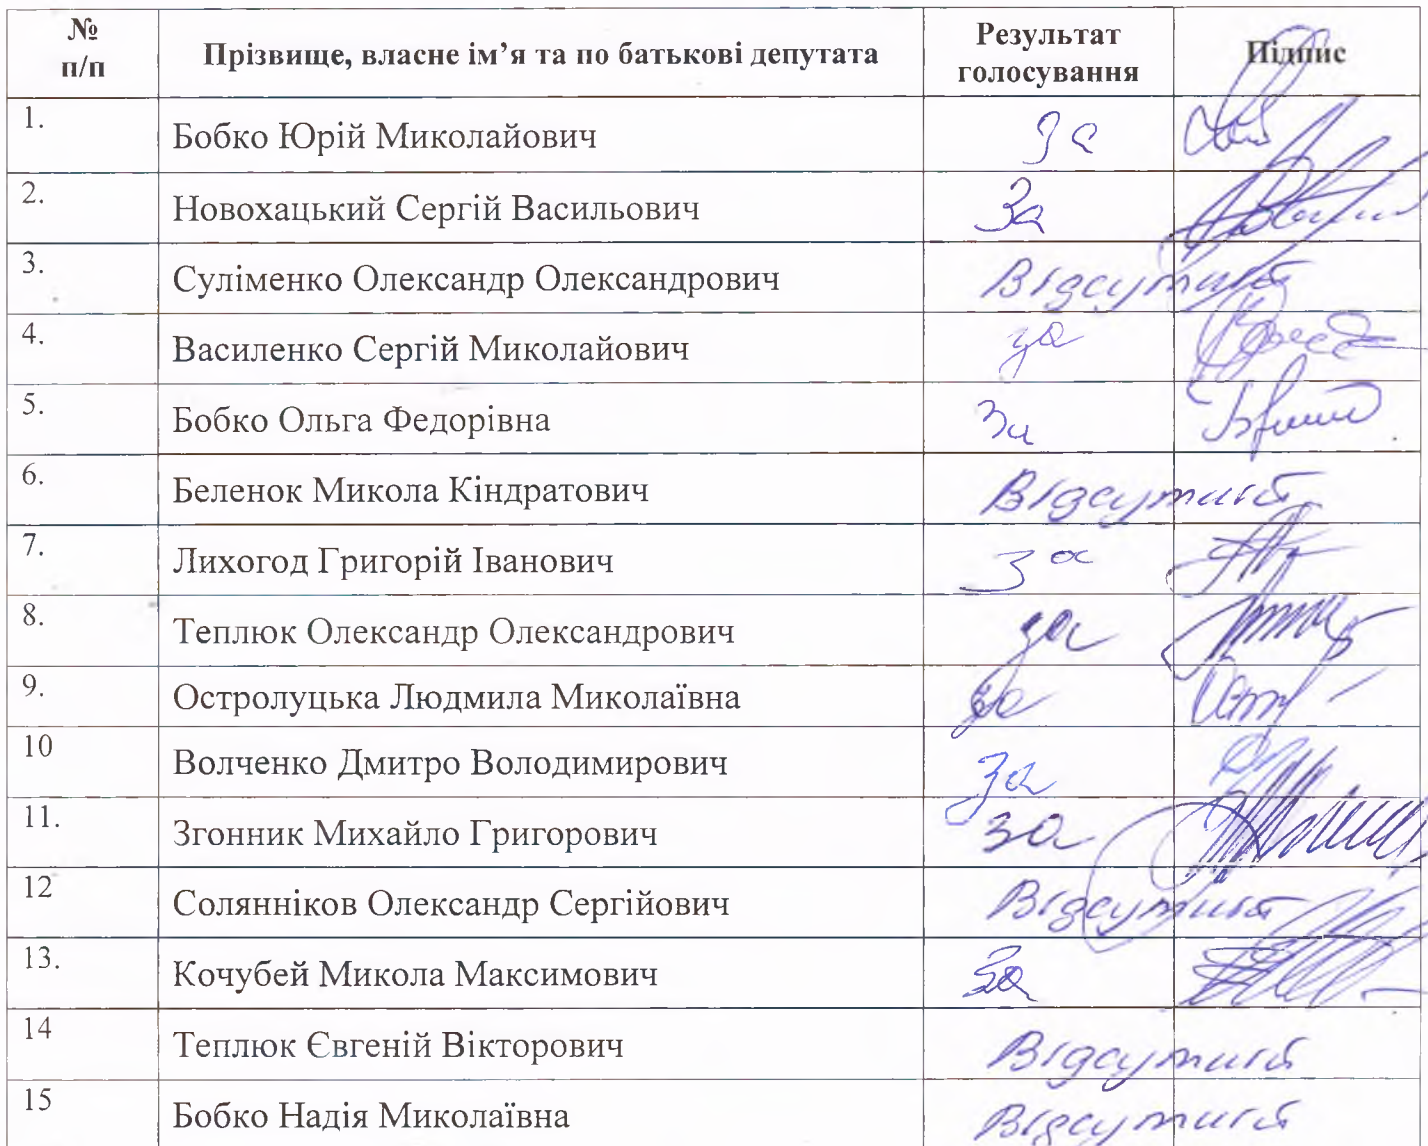 № п/п Прізвище, власне ім’я та по батькові депутата Результат голосування Підпис
1. Бобко Юрій Миколайович за
2. Новохацький Сергій Васильович За
3. Суліменко Олександр Олександрович Відсутній
4. Василенко Сергій Миколайович за
5. Бобко Ольга Федорівна За
6. Беленок Микола Кіндратович Відсутній
7. Лихогод Григорій Іванович За
8. Теплюк Олександр Олександрович за
9. Остролуцька Людмила Миколаївна за
10 Волченко Дмитро Володимирович за
11. Згонник Михайло Григорович за
12 Солянніков Олександр Сергійович Відсутній
13. Кочубей Микола Максимович За
14 Теплюк Євгеній Вікторович Відсутній
15 Бобко Надія Миколаївна Відсутній